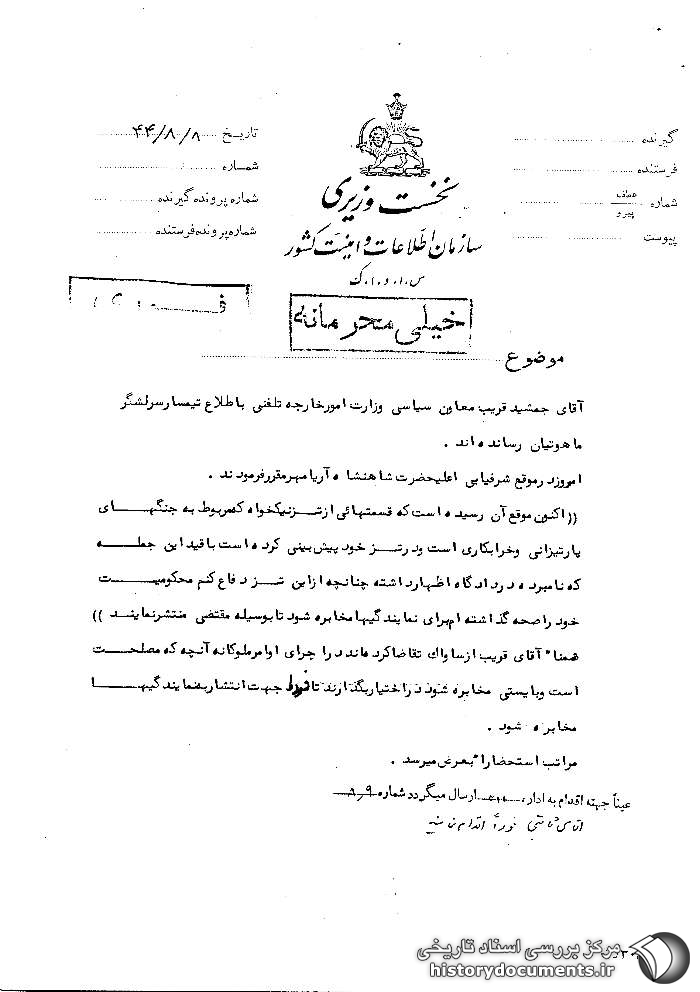 گیرنده
فرستنده
شماره عطف پیرو
پیوست
نخست وزیری
سازمان اطلاعات و امنیت کشور
س.ا.و.ا.ک
تاریخ ۴۴/۸/۸
شماره
شماره پرونده گیرنده
شماره پرونده فرستنده
خیلی محرمانه
موضوع
آقای جمشید قریب معاون سیاسی وزارت امور خارجه تلفنی باطلاع تیمسار سرلشگر
ماهوتیان رسانده اند .
امروز در موقع شرفیابی اعلیحضرت شاهنشاه آریامهر مقرر فرمودند .
((اکنون موقع آن رسیده است که قسمتهائی از تز نیکخواه که مربوط به جنگهای
پارتیزانی و خرابکاری است و در تز خود پیش بینی کرده است با قید این جمله
که نامبرده در دادگاه اظهار داشته چنانچه از این تز دفاع کنم محکومیت
خود را صحه گذاشته ام برای نمایندگیها مخابره شود تا بوسیله مقتضی منتشر نمایند ))
ضمنا" آقای قریب از ساواک تقاضا کرده اند در اجرای اوامر ملوکانه آنچه که مصلحت
است و بایستی مخابره شود در اختیار بگذارند تا فورا جهت انتشار به نمایندگیها
مخابره شود .
مراتب استحضارا" بعرض میرسد .
عیناً جهته اقدام به اداره ارسال میگردد شماره ۸۰۹
فوراً اقدام نمائید
مرکز بررسی اسناد تاریخی
historydocuments.ir